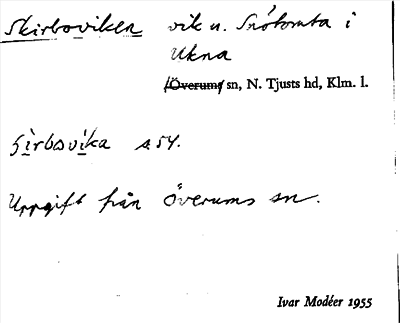 Skirboviken vik u. Snötomta i
Ukna
(Överums) sn, N. Tjusts hd, Klm. l.
s54.
Uppgift från Överums sn.
Ivar Modéer 1955